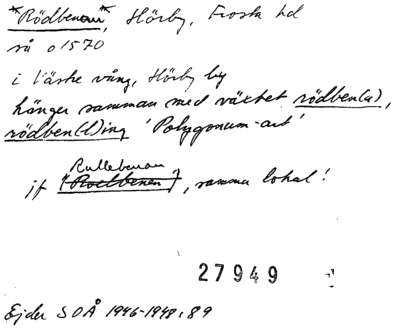 *Rödbenan*, Hörby, Frosta hd
så o 1570
i Västre vång, Hörby by
hänger samman med växtbet rödben(a),
rödben(l)ing 'Polygonum-art'
Rullebenan
jf [Roelbenen], samma lokal!
27949
Ejder SOÅ 1946-1948:89